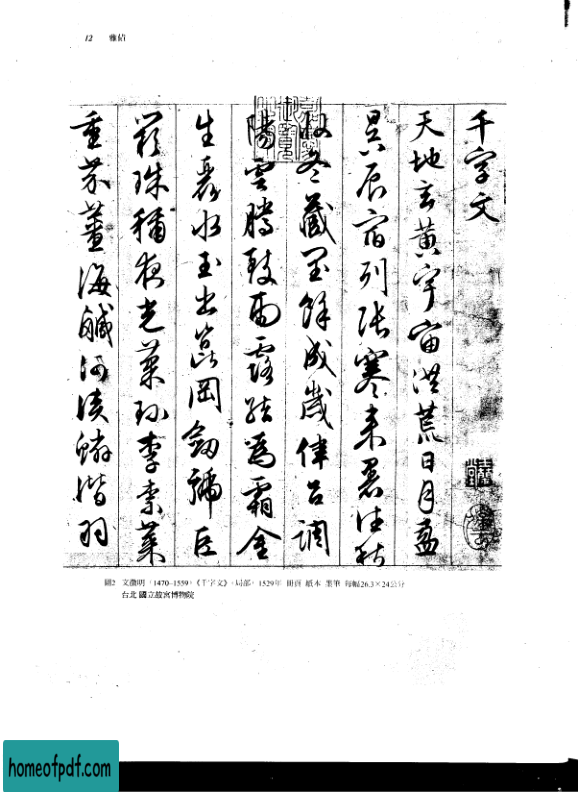 12 雅債
千字文
天地玄黃宇宙洪荒日月盈
昃辰宿列張寒來暑往秋
收冬藏閏餘成歲律呂調
陽雲騰致雨露結為霜金
生麗水玉出崑岡劍號巨
闕珠稱夜光菓珍李柰菜
重芥薑海鹹河淡鱗潛羽
圖2 文徵明（1470-1559）《千字文》，局部，1529年 冊頁 紙本 墨筆 每幅26.3×24公分
台北 國立故宮博物院
homeofpdf.com